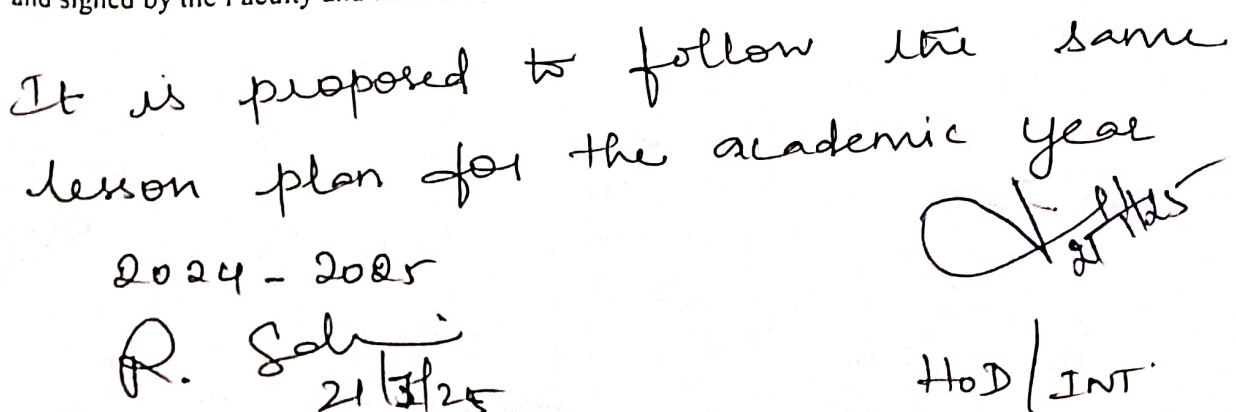 and signed by the Faculty and
It is proposed to follow the same
lesson plan for the academic year
2024 - 2025
R.
HOD/INT.